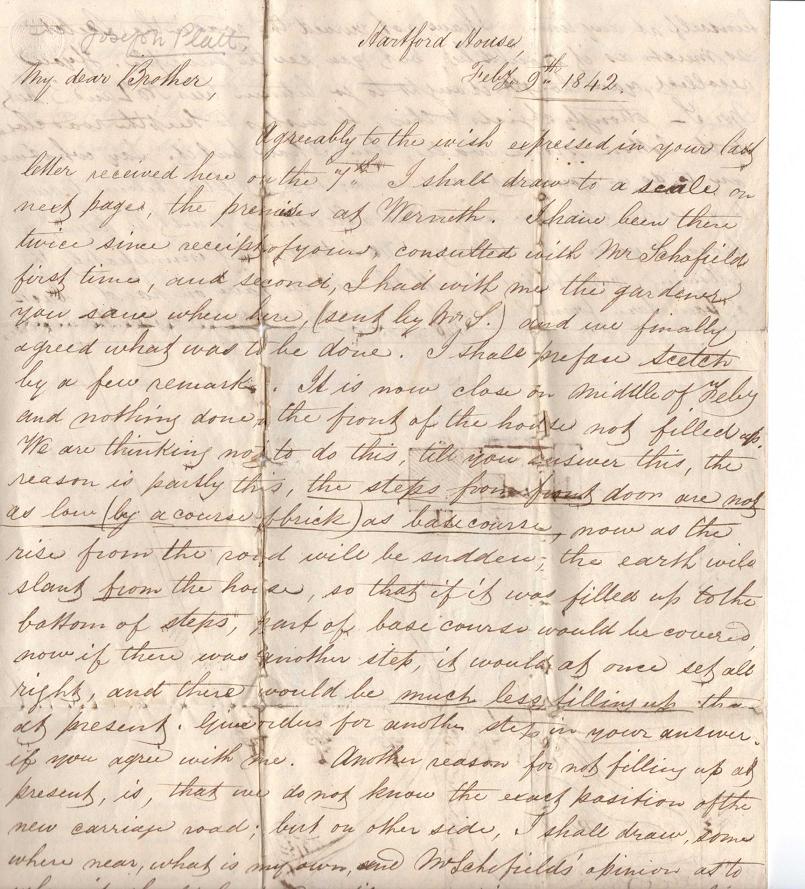 Joseph Platt,
Hartford House,
Feby 9th 1842.
My dear Brother,
Agreeably to the wish expressed in your last
letter received here on the 7th. I shall draw to a scale on
next page, the premises at Werneth. I have been there
twice since receipt of yours, consulted with Mr Schofield
first time, and second, I had with me the gardener
you saw when here, (sent by Mr S.) and we finally
agreed what was to be done. I shall preface scetch
by a few remarks. It is now close on middle of Feby
and nothing done, the front of the house not filled up.
We are thinking not to do this, till you answer this, the
reason is partly this, the steps from front door are not
as low (by a course of brick) as base course, now as the
rise from the road will be sudden, the earth will
slant from the house, so that if it was filled up to the
bottom of steps, part of base course would be covered,
now if there was another step, it would at once set all
right, and there would be much less filling up than
at present. Give orders for another step in your answer.
if you agree with me. Another reason for not filling up at
present, is, that we do not know the exact position of the
new carriage road; but on other side, I shall draw, some
where near, what is my own, and Mr Schofields' opinion as to